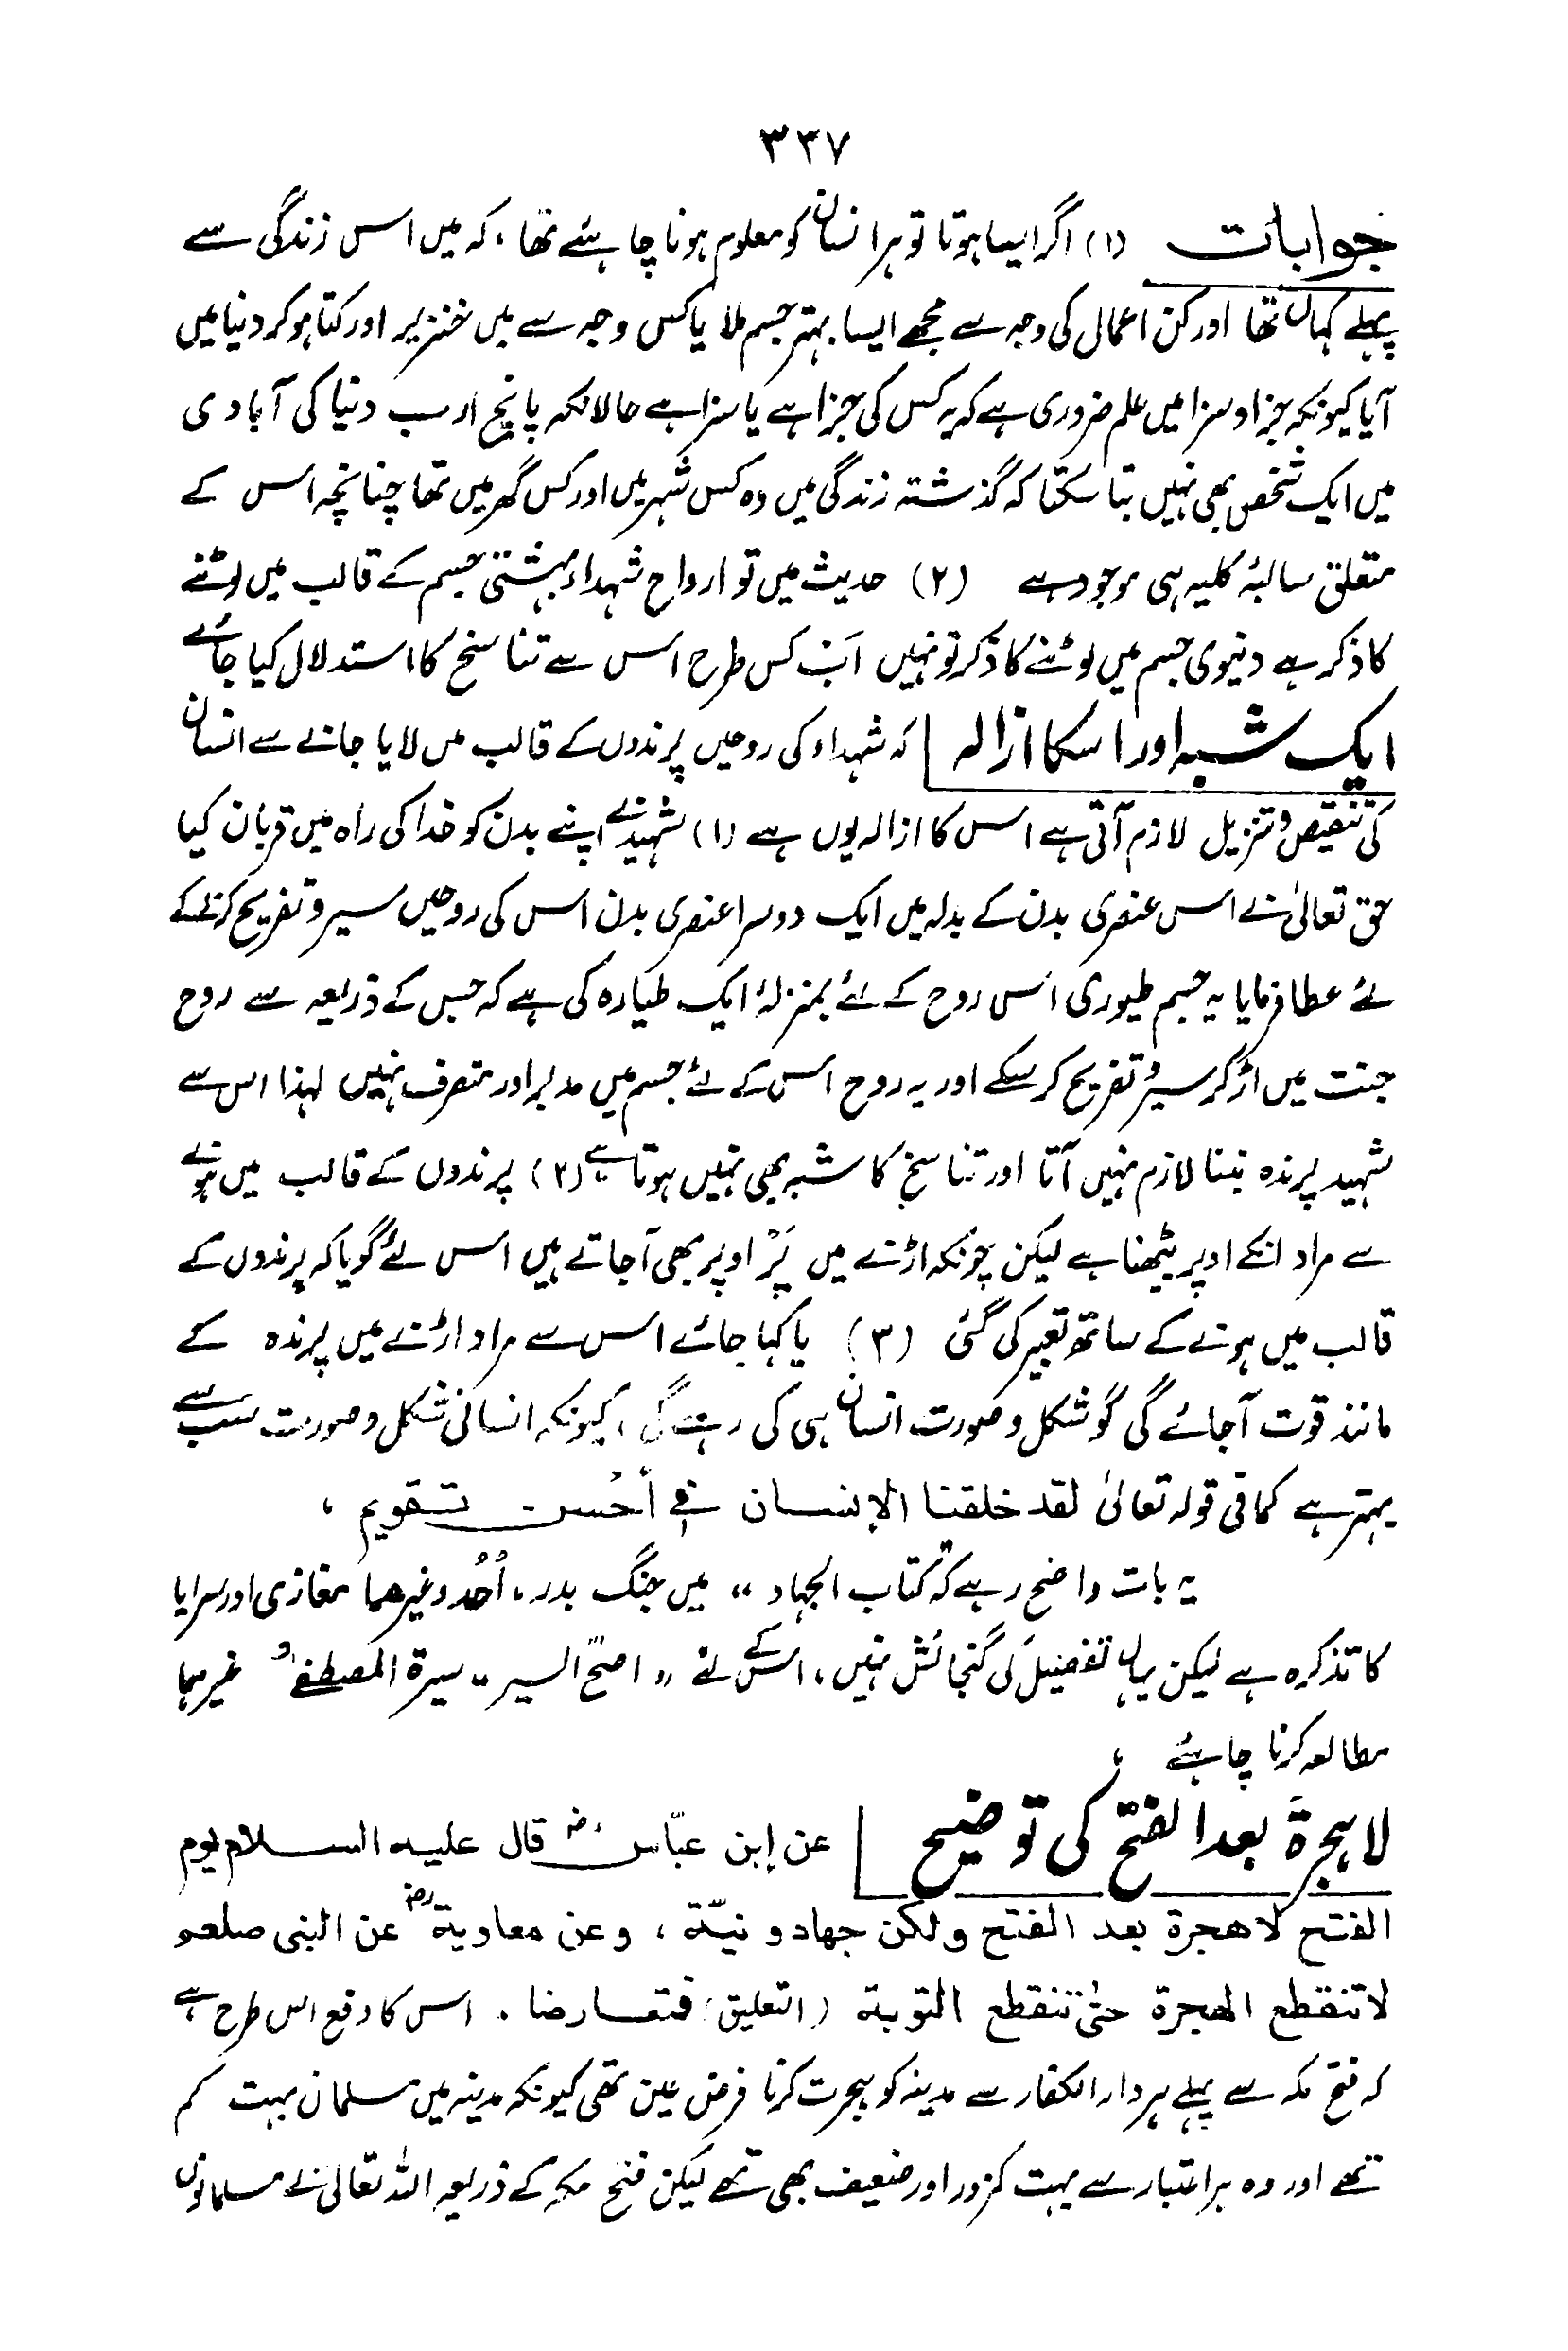 ۳۳۷
جوابات (۱) اگر ایسا ہوتا تو ہر انسان کو معلوم ہونا چاہئے تھا، کہ میں اس زندگی سے
پہلے کہاں تھا اور کن اعمال کی وجہ سے مجھے ایسا بہتر جسم ملا یا کس وجہ سے میں خنزیر اور کتا ہوکر دنیا میں
آیا کیونکہ جزا وسزا میں علم ضروری ہے کہ یہ کس کی جزا ہے یا سزا ہے حالانکہ پانچ ارب دنیا کی آبادی
میں ایک شخص بھی نہیں بتا سکتا کہ گذشتہ زندگی میں وہ کس شہر میں اور کس گھر میں تھا چنانچہ اس کے
متعلق سالبۂ کلیہ ہی موجود ہے (۲) حدیث میں تو ارواح شہداء بہشتی جسم کے قالب میں لوٹنے
کا ذکر ہے دنیوی جسم میں لوٹنے کا ذکر تو نہیں اَب کس طرح اس سے تناسخ کا استدلال کیا جائے
ایک شبہ اور اسکا ازالہ کہ شہداء کی روحیں پرندوں کے قالب میں لایا جانے سے انسان
کی تنقیص وتنزیل لازم آتی ہے اس کا ازالہ یوں ہے (۱) شہید نے اپنے بدن کو خدا کی راہ میں قربان کیا
حق تعالیٰ نے اس عنصری بدن کے بدلہ میں ایک دوسرا عنصری بدن اس کی روحیں سیر و تفریح کرنے کے
لئے عطا فرمایا یہ جسم طیوری اس روح کے لئے بمنزلۂ ایک طیارہ کی ہے کہ جس کے ذریعہ سے روح
جنت میں اڑ کر سیر و تفریح کرسکے اور یہ روح اس کے لئے جسم میں مدبر اور متصرف نہیں لہذا اس سے
شہید پرندہ بننا لازم نہیں آتا اور تناسخ کا شبہ بھی نہیں ہوتا ہے (۲) پرندوں کے قالب میں ہونے
سے مراد انکے اوپر بیٹھنا ہے لیکن چونکہ اڑنے میں پَر اوپر بھی آجاتے ہیں اس لئے گویا کہ پرندوں کے
قالب میں ہونے کے ساتھ تعبیر کی گئی (۳) یا کہا جائے اس سے مراد اڑنے میں پرندہ کے
مانند قوت آجائے گی گو شکل و صورت انسان ہی کی رہے گی، کیونکہ انسانی شکل و صورت سب سے
بہتر ہے کما فی قولہ تعالیٰ لقد خلقنا الإنسان في أحسن تقویم ،
یہ بات واضح رہے کہ "کتاب الجہاد" میں جنگ بدر، اُحُد وغیرهما مغازی اور سرایا
کا تذکرہ ہے لیکن یہاں تفصیل کی گنجائش نہیں، اس کے لئے " اصحّ السیر" سیرۃ المصطفےٰ و غیرہما
مطالعہ کرنا چاہئے ؛
لاہجرۃَ بعد الفتح کی توضیح عن إبن عبّاسؓ قال علیہ السلام یوم
الفتح لاهجرة بعد الفتح ولکن جهاد و نیّة ، وعن معاویةؓ عن النبی صلعم
لا تنقطع الهجرة حتٰی تنقطع التوبة (التعلیق) فتعارضا . اس کا دفع اس طرح ہے
کہ فتح مکہ سے پہلے ہر دار الکفار سے مدینہ کو ہجرت کرنا فرض عین تھی کیونکہ مدینہ میں مسلمان بہت کم
تھے اور وہ ہر اعتبار سے بہت کمزور اور ضعیف بھی تھے لیکن فتح مکہ کے ذریعہ اللہ تعالیٰ نے مسلمانوں